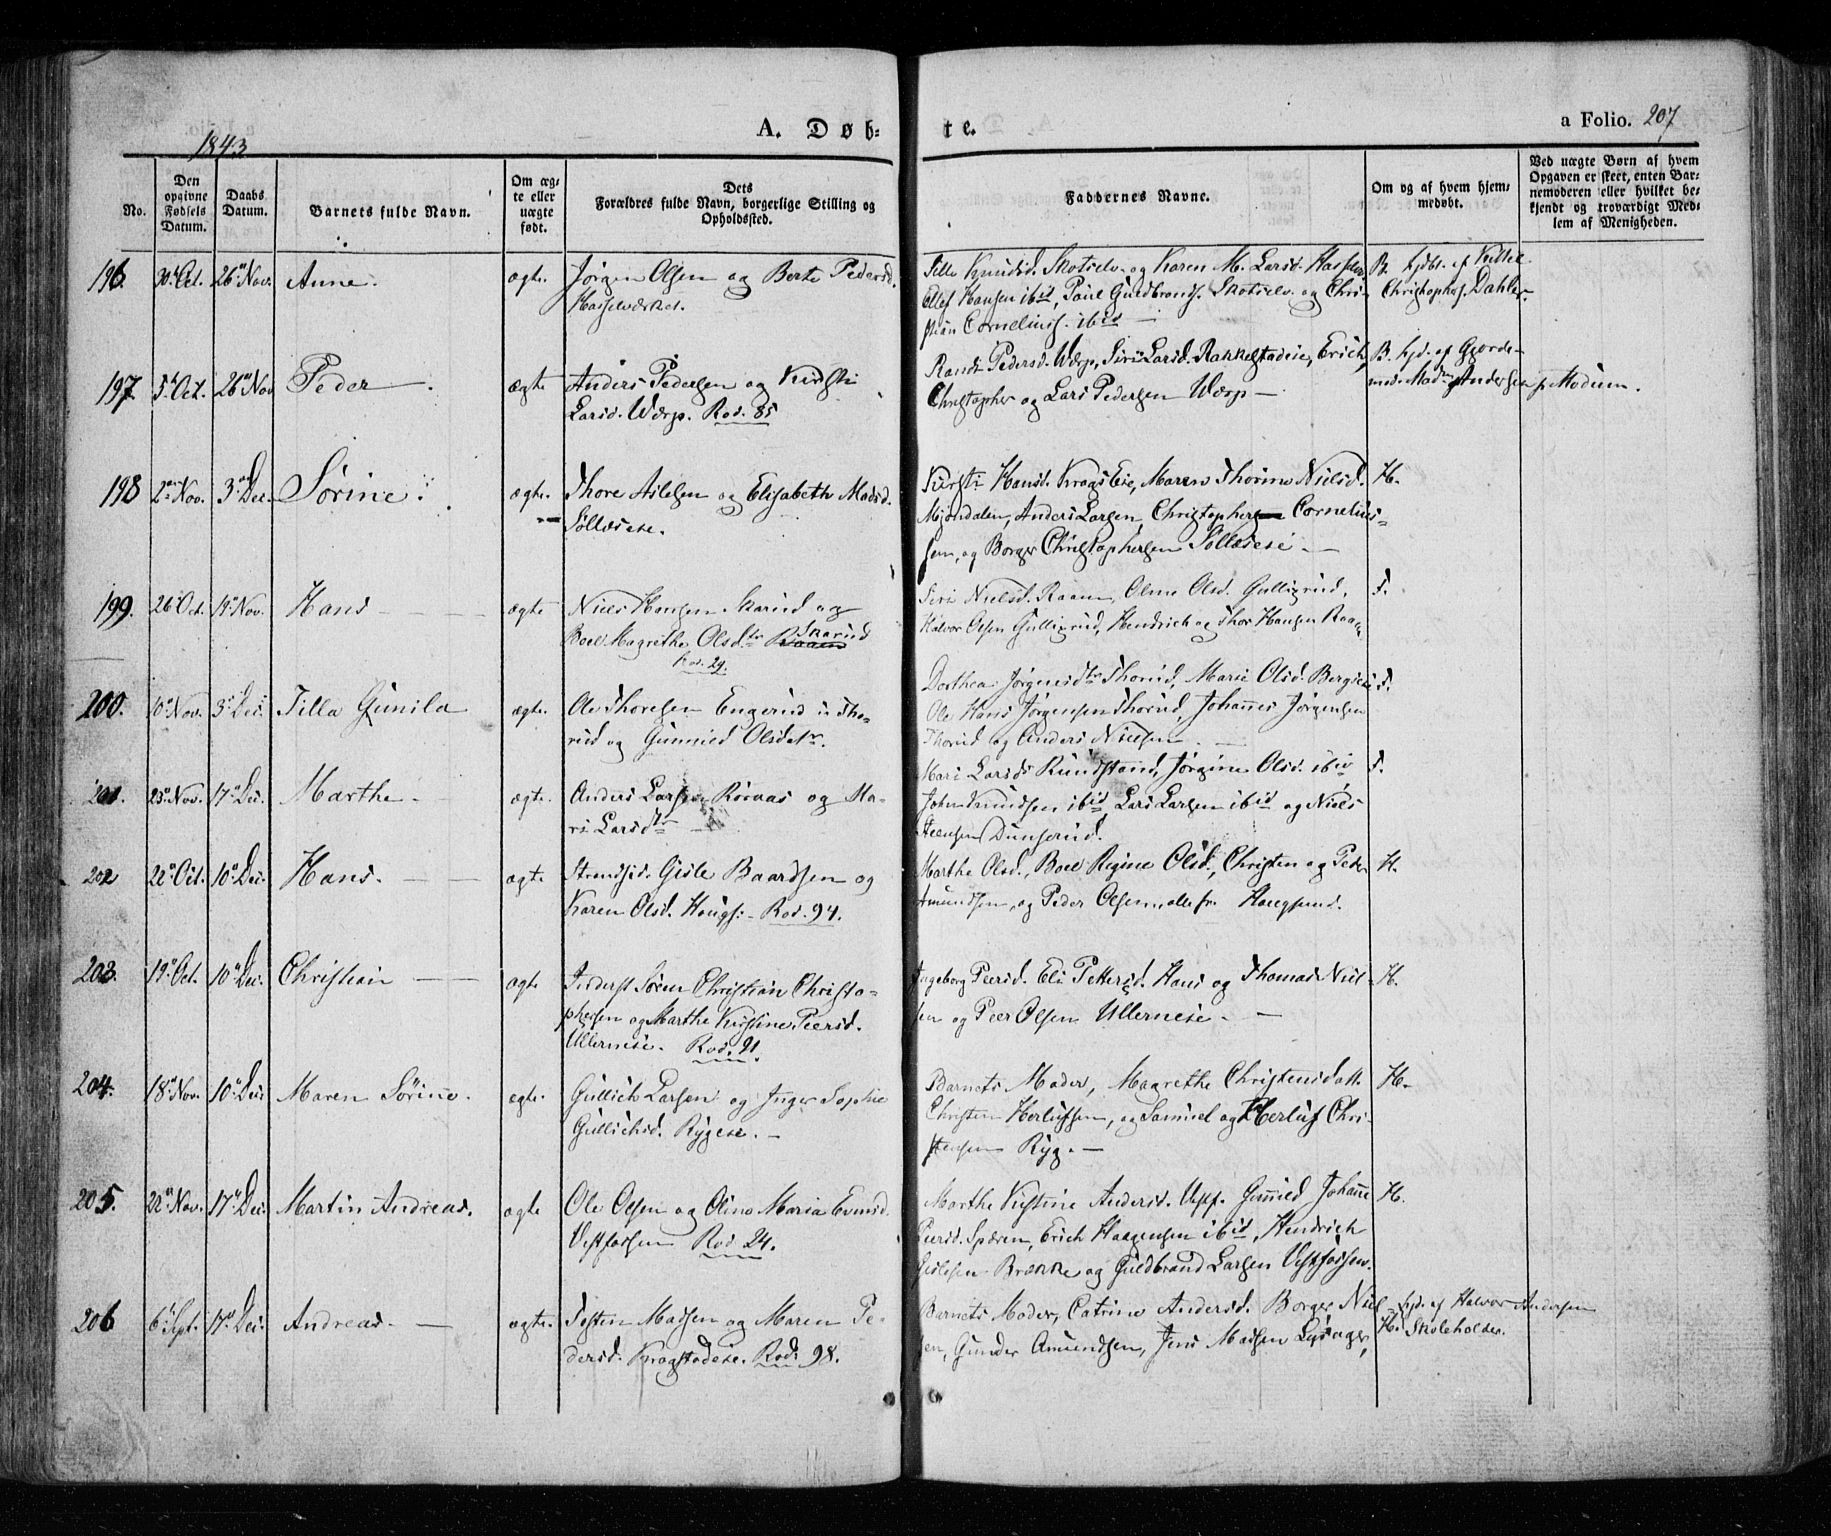 1843
A. Døb-
te.
a Folio. 207
No.
Den
opgivne
Fødsels
Datum.
Daabs
Datum.
Barnets fulde Navn.
Om æg-
te eller
uægte
født.
Dets
Forældres fulde Navn, borgerlige Stilling og
Opholdssted.
Faddernes Navne.
Om og af hvem hjem-
medøbt.
Ved uægte Børn af hvem
Opgaven er skeet, enten Bar-
nemoderen eller hvilket be-
kjendt og troværdigt Med-
lem af Menigheden.
196 30 Oct. 26 Nov. Anne. ægte. Jørgen Olsen og Berte Pedersd.
Hasselværket.
Knudsd. Skotselv. og Karen M. Larsd. Hasselv.
Ellef Hansen ibid, Paul Guldbrands. Skotselv. og Chri-
stian Corneliuss. ibid —
B. hjdbt. af Kittel
Christophers. Dahler.
197 5 Oct. 26 Nov Peder ægte Anders Pedersen og Kirsti
Larsd. Wærp. Rod. 85
Randi Pedersd. Wærp, Siri Larsd. Rakkestadeie, Erich,
Christopher og Lars Pedersen Wærp —
B. hjd. af Gjorde-
mod. Mad. Andersen p Modum.
198 2 Nov. 3 Dec. Sørine. ægte. Thore Aslesen og Elisabeth Madsd.
Sollæseie.
Kirsti Hansd. Krogs Eie, Maren Thorine Nielsd.
Mjøndalen, Anders Larsen, Christopher Cornelius-
sen, og Borger Christophersen Sollæseie —
H.
199. 26 Oct. 19 Nov. Hans ægte Niels Hansen Skarud og
Boel Magrethe Olsdtr Raaen Skarud
Rod. 29.
Siri Nielsd. Raaen, Olme Olsd. Gulligrud,
Halvor Olsen Gulligrud, Hendrich og Thor Hansen Raaen
F.
200. 10 Nov. 3 Dec. Tilla Gunila ægte. Ole Thoresen Engerud i Tho-
rud og Gunnild Olsdatr.
Dorthea Jørgensdtr Thorud, Marie Olsd. Bergseie
Ole Hans Jørgensen Thorud, Johannes Jørgensen
Thorud og Anders Nielsen —
F.
201. 23 Nov. 17 Dec. Marthe ægte. Anders Larsen Rørvas og Ma-
ri Larsdtr —
Mari Larsd. Rundstand, Jørgine Olsd. ibid
John Knudsen ibid, Lars Larsen ibid og Niels
Steensen Dunserud.
F.
202 22 Oct. 10 Dec. Hans. ægte Strandsid. Gisle Baardsen og
Karen Olsd. Hougs: - Rod. 94.
Marthe Olsd., Boel Regine Olsd., Christen og Peder
Amundsen, og Peder Olsen, alle fr. Hougsund.
H.
203. 19 Oct. 10 Dec. Christian ægte Inderst Søren Christian Christo-
phersen og Marthe Kirstine Peersd.
Ullerneie. Rod. 91.
Ingeborg Peersd. Eli Pettersd. Hans og Thomas Niel-
sen og Peer Olsen Ullerneie —
H.
204. 18 Nov. 10 Dec. Maren Sørine. ægte. Gullich Larsen og Inger Sophie
Gullichsd. Rygeie. —
Barnets Moder, Magrethe Christensdatt.
Christen Herlufsen, og Samuel og Herluf Chri-
stensen Ryg. —
H.
205. 22 Nov. 17 Dec. Martin Andreas. ægte Ole Olsen og Oline Maria Evensd.
Vestfossen Rod 24.
Marthe Kistine Andersd. Vestf. Gunild Johanne
Peersd. Spæren, Erich Haagensen ibid, Hendrich
Gislesen Brække og Guldbrand Larsen Vestfossen.
H.
206 6 Spt. 17 Dec. Andreas. ægte. Tosten Madsen og Maren Pe-
dersd. Krogstadeie. Rod. 98.
Barnets Moder, Catrine Andersd. Borger Niel-
sen, Gunder Amundsen, Jens Madsen Lysager,
hjd. af Halvor Andersen
H. Skoleholder.